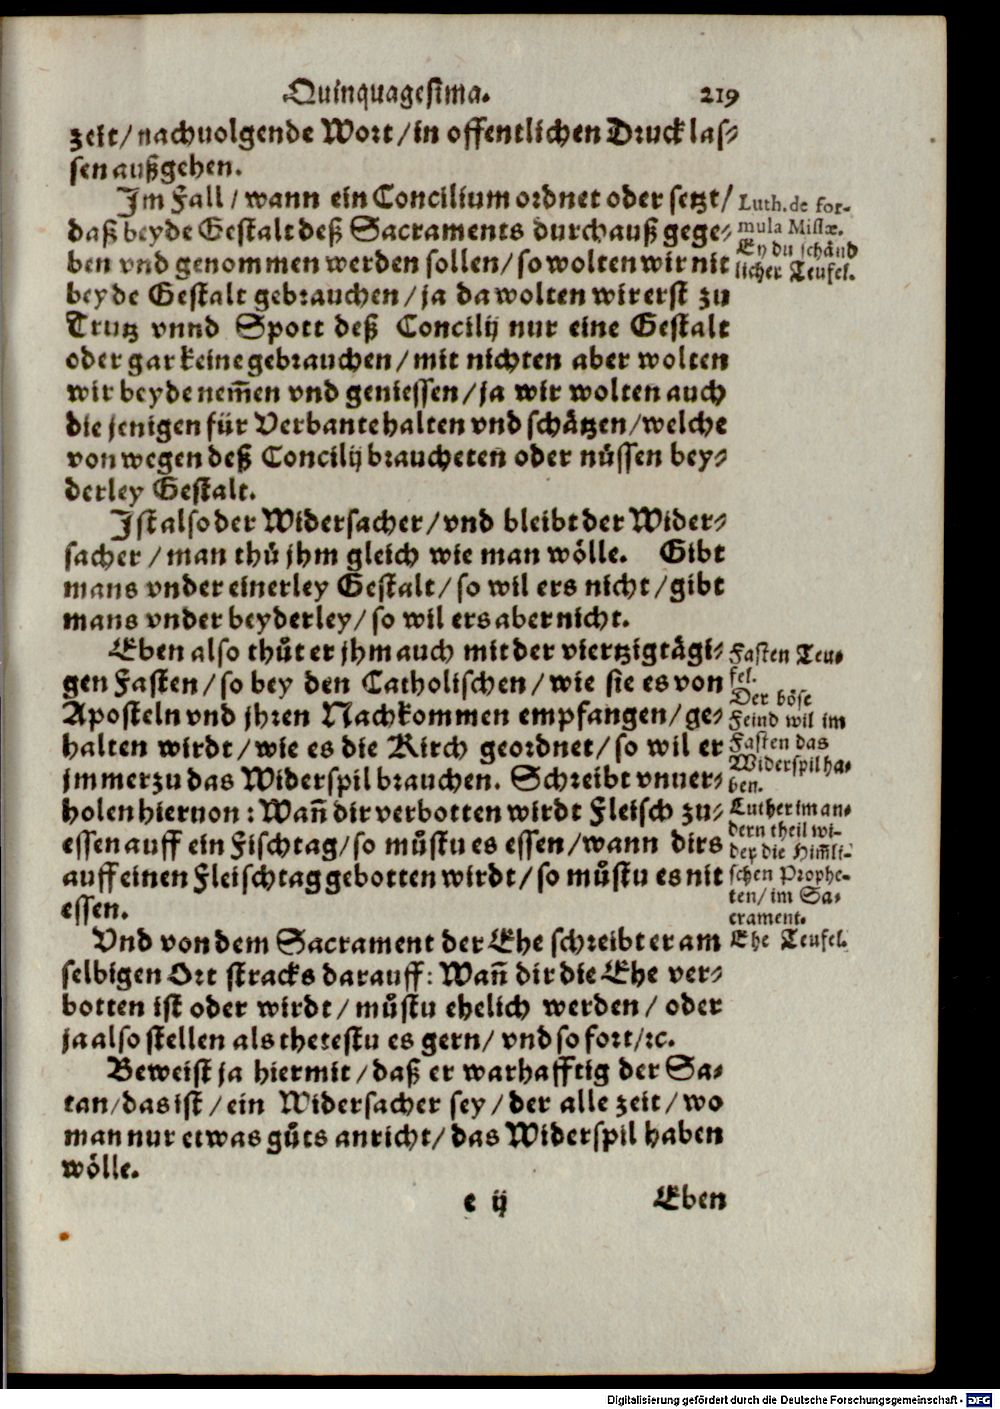 Quinquagesima. 219
zeit/nachuolgende Wort/in offentlichen Druck las⸗
sen außgehen.
Im Fall/wann ein Concilium ordnet oder setzt/
daß beyde Gestalt deß Sacraments durchauß gege⸗
ben vnd genommen werden sollen/so wolten wir nit
beyde Gestalt gebrauchen/ja da wolten wir erst zu
Trutz vnnd Spott deß Concilij nur eine Gestalt
oder gar keine gebrauchen/mit nichten aber wolten
wir beyde nem̃en vnd geniessen/ja wir wolten auch
die jenigen für Verbante halten vnd schätzen/welche
von wegen deß Concilij braucheten oder nüssen bey⸗
derley Gestalt.
Ist also der Widersacher/vnd bleibt der Wider⸗
sacher/man thů jhm gleich wie man wölle. Gibt
mans vnder einerley Gestalt/so wil ers nicht/gibt
mans vnder beyderley/so wil ers aber nicht.
Eben also thůt er jhm auch mit der viertzigtägi⸗
gen Fasten/so bey den Catholischen/wie sie es von
Aposteln vnd jhren Nachkommen empfangen/ge⸗
halten wirdt/wie es die Kirch geordnet/so wil er
jmmerzu das Widerspil brauchen. Schreibt vnuer⸗
holen hieruon: Wañ dir verbotten wirdt Fleisch zu⸗
essen auff ein Fischtag/so můstu es essen/wann dirs
auff einen Fleischtag gebotten wirdt/so můstu es nit
essen.
Vnd von dem Sacrament der Ehe schreibt er am
selbigen Ort stracks darauff: Wañ dir die Ehe ver⸗
botten ist oder wirdt/můstu ehelich werden/oder
ja also stellen als thetestu es gern/vnd so fort/ꝛc.
Beweist ja hiermit/daß er warhafftig der Sa⸗
tan/das ist/ein Widersacher sey/der alle zeit/wo
man nur etwas gůts anricht/das Widerspil haben
wölle.
e ij Eben
Luth. de for-
mula Missæ.
Ey du schänd
licher Teufel.
Fasten Teu⸗
fel.
Der böse
Feind wil im
Fasten das
Widerspil ha⸗
ben.
Luther im an⸗
dern theil wi⸗
der die Him̃li⸗
schen Prophe⸗
ten/im Sa⸗
crament.
Ehe Teufel.
Digitalisierung gefördert durch die Deutsche Forschungsgemeinschaft - DFG